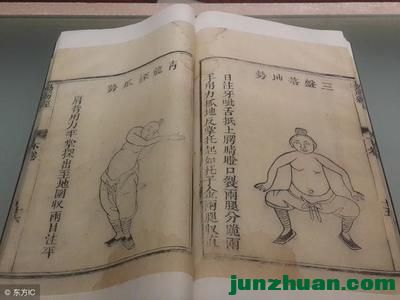 三盤落地勢
目注牙呲舌抵上腭睛瞪口裂兩腿分跪兩
手用力抓地反掌托起如托千金兩腿收直
青龍探爪勢
肩背用力平掌探出至地圍收兩目注平
© 东方IC
junzhuan.com